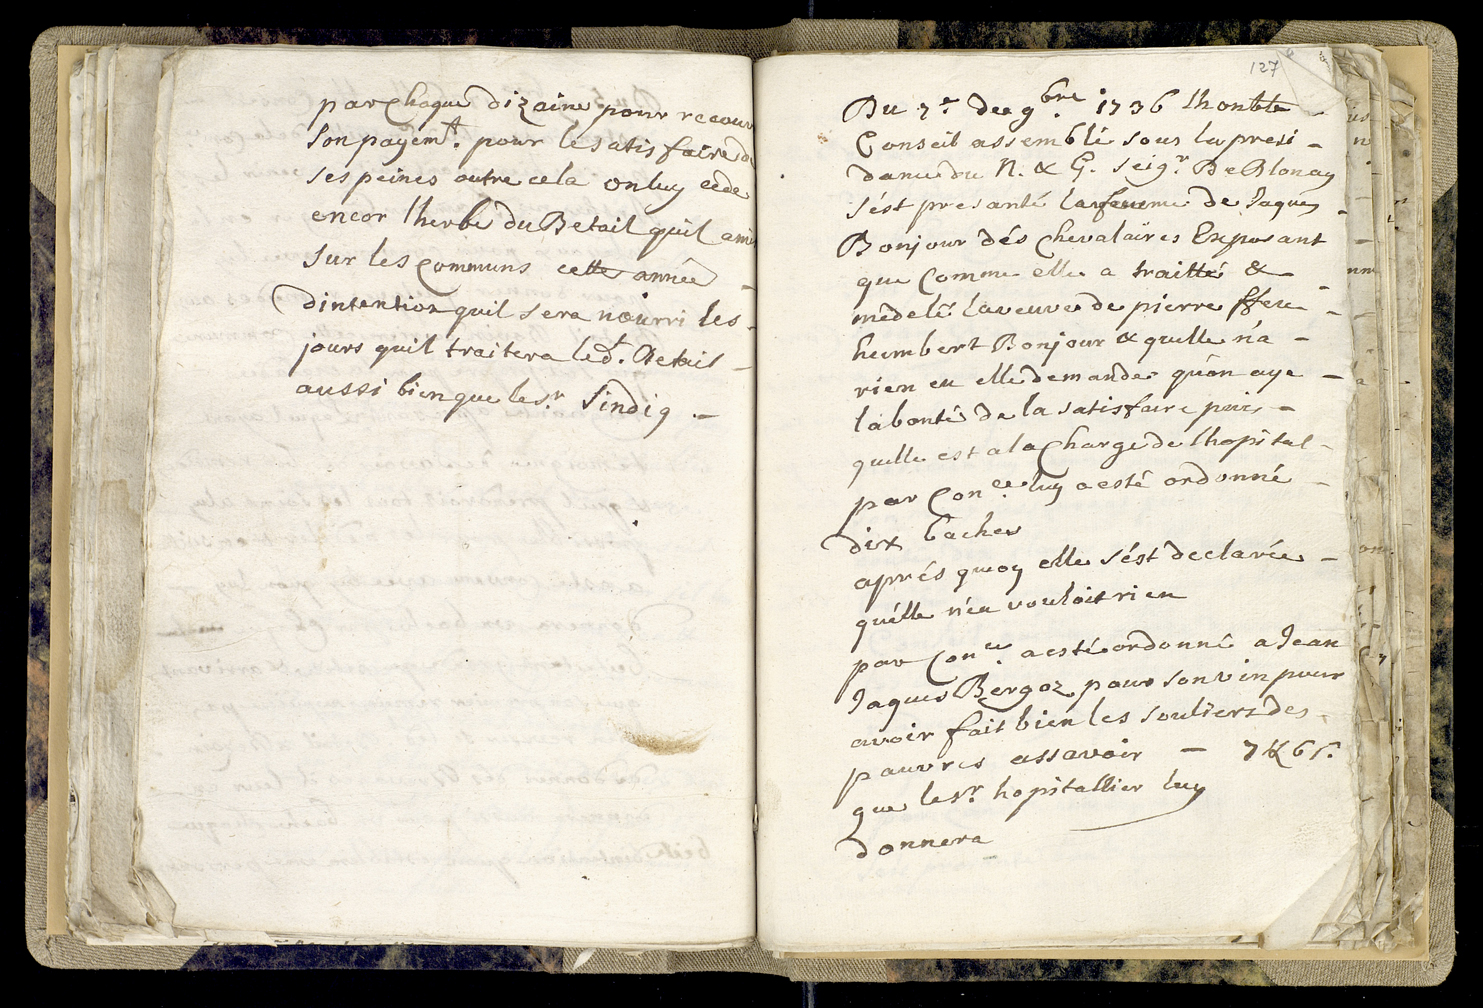 par Chaque dizaine pour recouv
Son payem.t pour le satisfaire de
ses peines outre cela on luy cede
encor lherbe du Betail quil a mi
sur les Communs cette année
dintention quil sera nourri les
jours quil traitera led.t Betail
aussi bien que le s.r Sindiq
127
Du 7.e de 9bre 1736 lhonble
Conseil assemblé sous la presi
dance du N. & G. Seig.r De Blonay
s'ést presanté la femme de Jaques
Bonjour dés Chevalaires Exposant
que Comme elle a traitté &
médelé la veuve de pierre ffeu
humbert Bonjour & quelle n'a
rien eu elle demande qu'on aye
la bonté de la satisfaire puis
quelle est a la Charge de lhopital
par Con.ce luy a esté ordonné
dix baches
aprés quoy elle s'ést declarée
qu'elle n'en vouloit rien
par Con.ce a esté ordonné a Jean
Jaques Bergoz pour son vin pour
avoir fait bien les souliers des
pauvres assavoir 7 ff 6 s.
que le s.r hopitallier luy
donnera